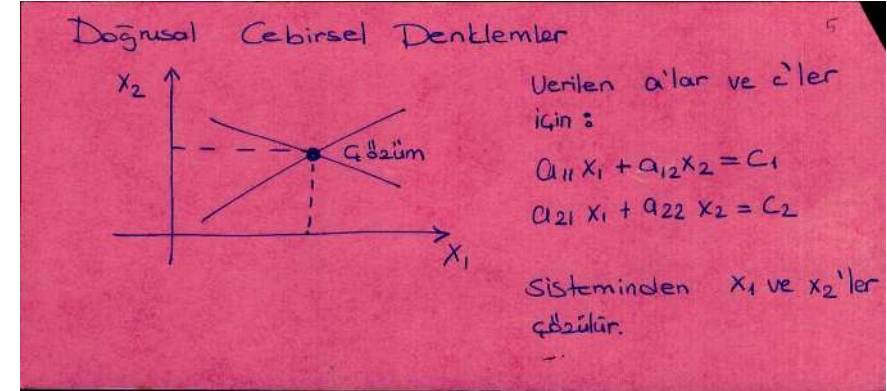 Doğrusal Cebirsel Denklemler
5
x₂
Çözüm
x₁
Verilen a'lar ve c'ler
için :
a₁₁ x₁ + a₁₂ x₂ = C₁
a₂₁ x₁ + a₂₂ x₂ = C₂
Sisteminden x₁ ve x₂'ler
çözülür.